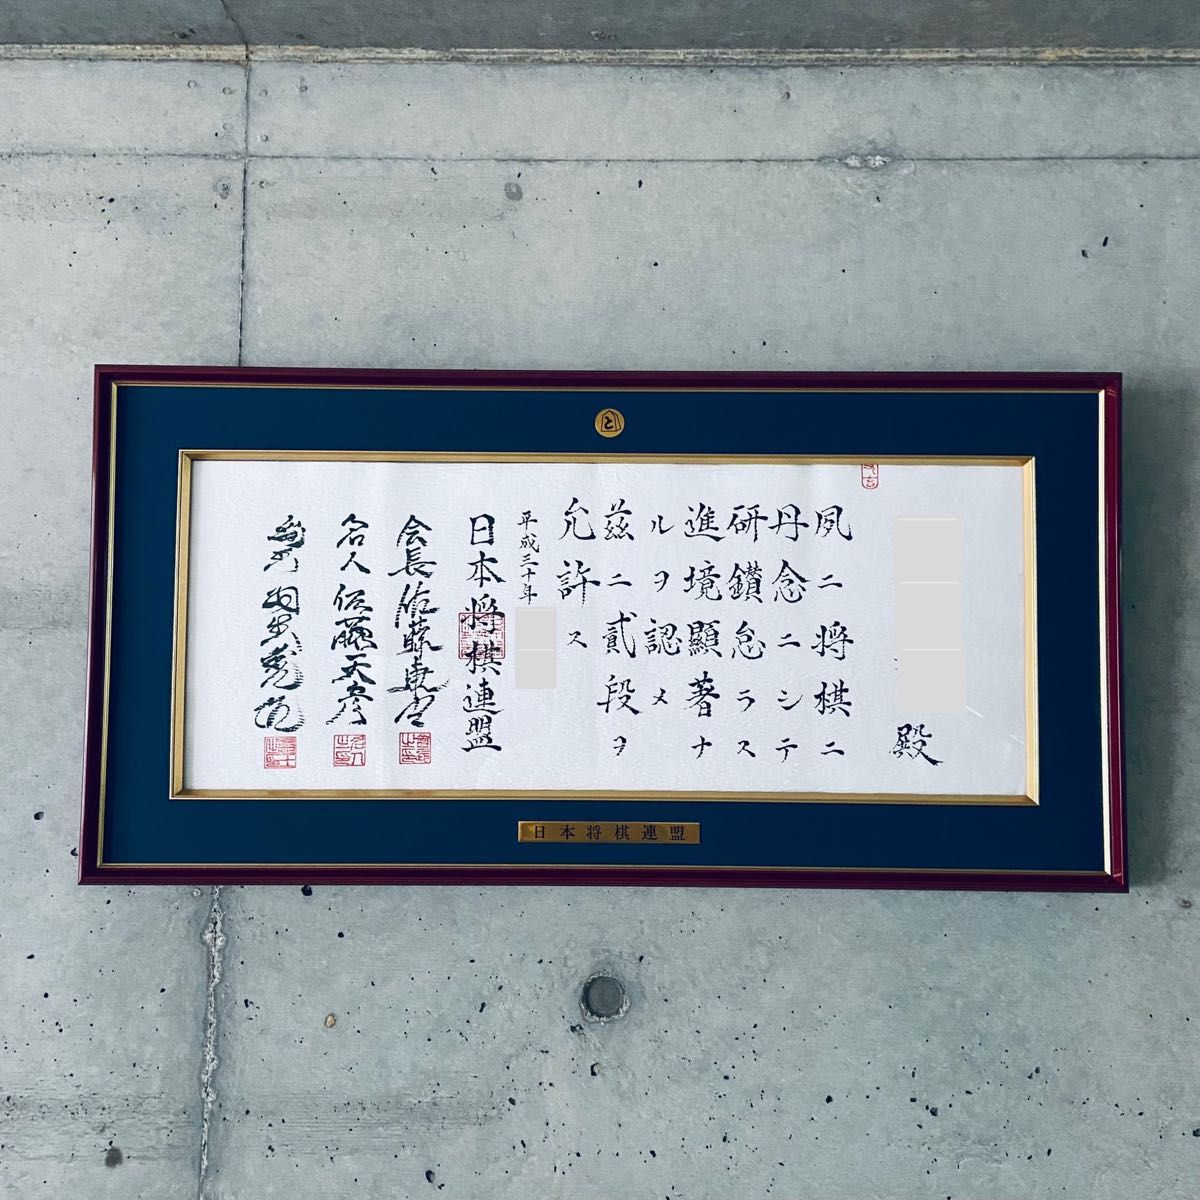 殿
夙ニ将棋ニ
丹念ニシテ
研鑚怠ラス
進境顯著ナ
ルヲ認メ
茲ニ貳段ヲ
允許ス
平成三十年
日本将棋連盟
会長佐藤康光
名人佐藤天彦
竜王羽生善治
日本将棋連盟